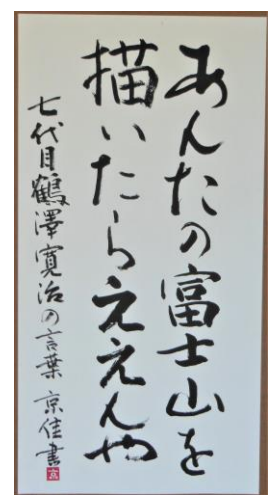 あんたの富士山を
描いたらええんや
七代目鶴澤寛治の言葉 京佳書